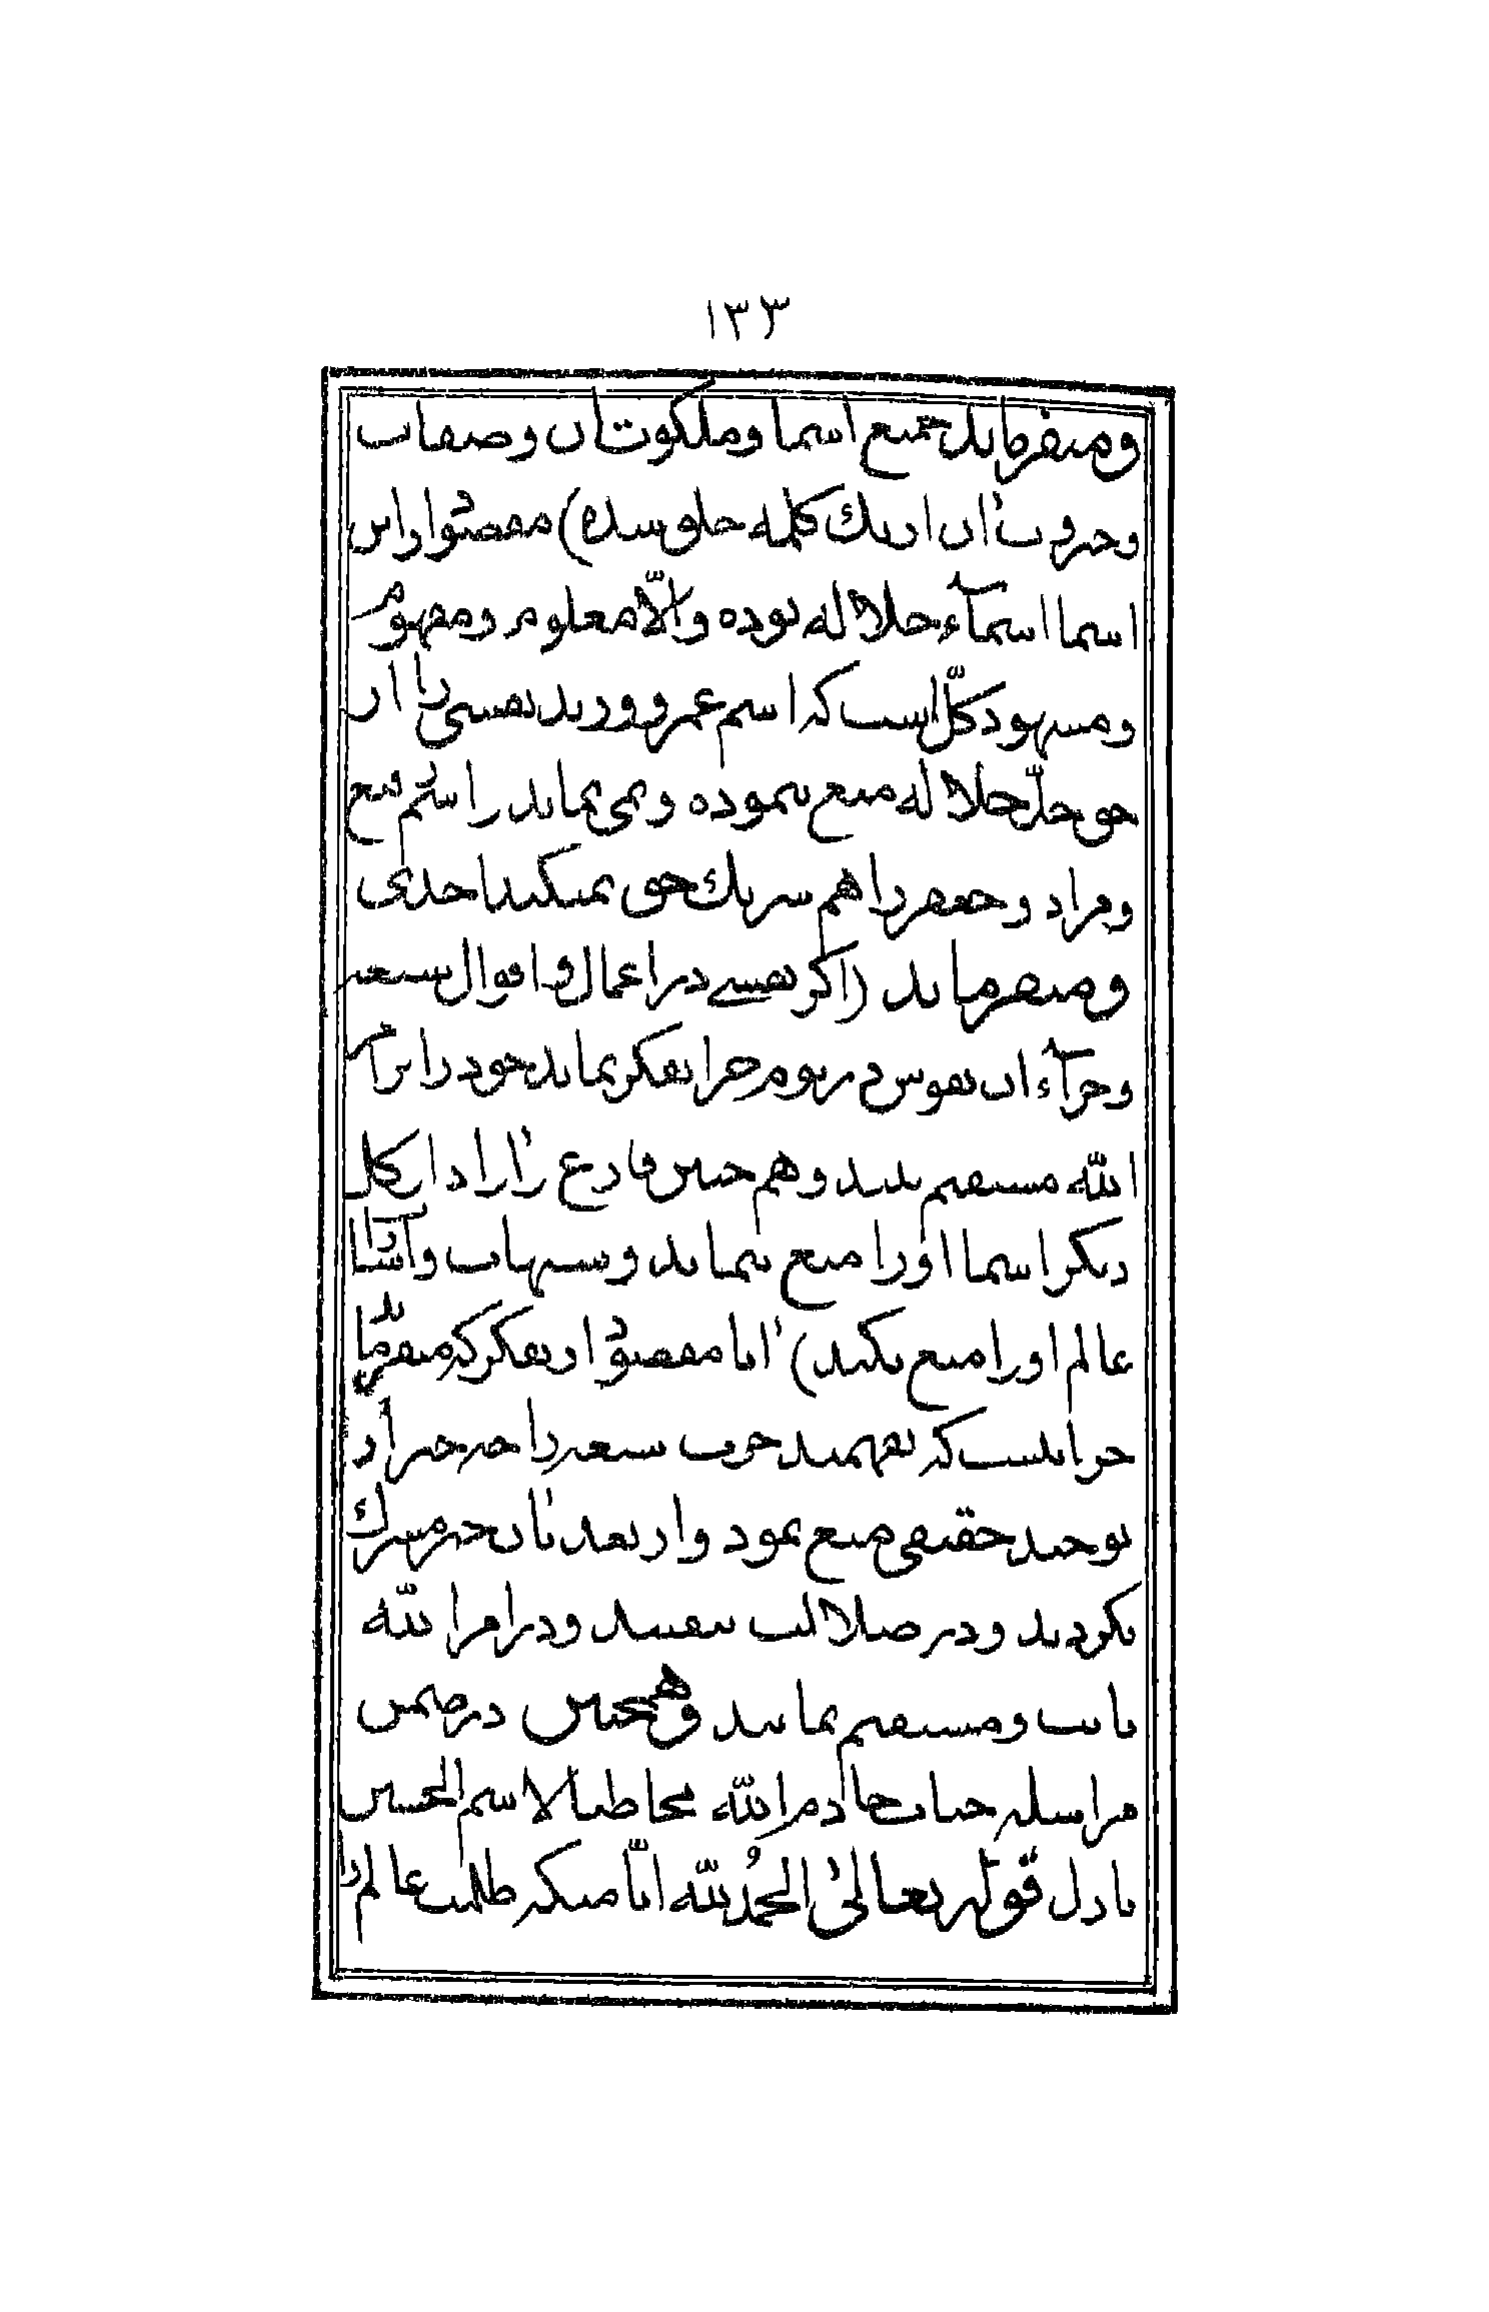 ١٣٣
ومیفرماید جمیع اسما وملکوت ان وصفات
وجبروت ان از یك کلمه خلق شده) مقصود از این
اسما اسمآء جلاله بوده والّا معلوم ومفهوم
ومشهود کلّ است که اسم عمرو وزید نفسی را از
حق جلّ جلاله منع ننموده ونمی نماید واسم شیع
ومراد وجعفر را هم شریك حق نمیکند احدی
ومیفرماید (اگر نفسی در اعمال واقوال شیعه
وجزآء ان نفوس در یوم جزا تفکر نماید خود را بر امر
الله مستقیم بیند وهم چنین فارغ وآزاد از کل
دیگر اسما او را منع ننماید وشبهات واشارات
عالم او را منع نکند) انا مقصود از تفکر که میفرماید
جز اینست که بفهمید حزب شیعه را چه چیز از
توحید حقیقی منع نمود واز بعد بان چیز مشرك
نگردید ودر ضلالت نیفتید ودر امر الله
ثابت ومستقیم بمانید وهمچنین در ضمن
مراسله جناب خادم الله مخاطبا لاسم الحسین
نازل قوله تعالی الحمد لله ایّامیکه ظلمت عالم را